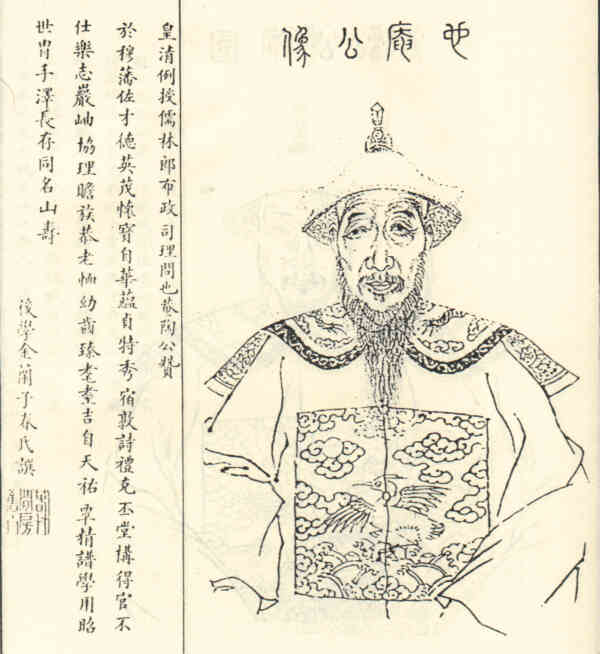 也庵公像
皇清例授儒林郎布政司理問也菴陶公贊
於穆藩佐才德英茂懷寶自華蘊貞特秀宿敦詩禮克丕堂構得官不
仕樂志巖岫協理贍族恭老恤幼齒臻耄耋吉自天祐覃精譜學用昭
世胄手澤長存同名山壽
後學余蘭子春氏譔